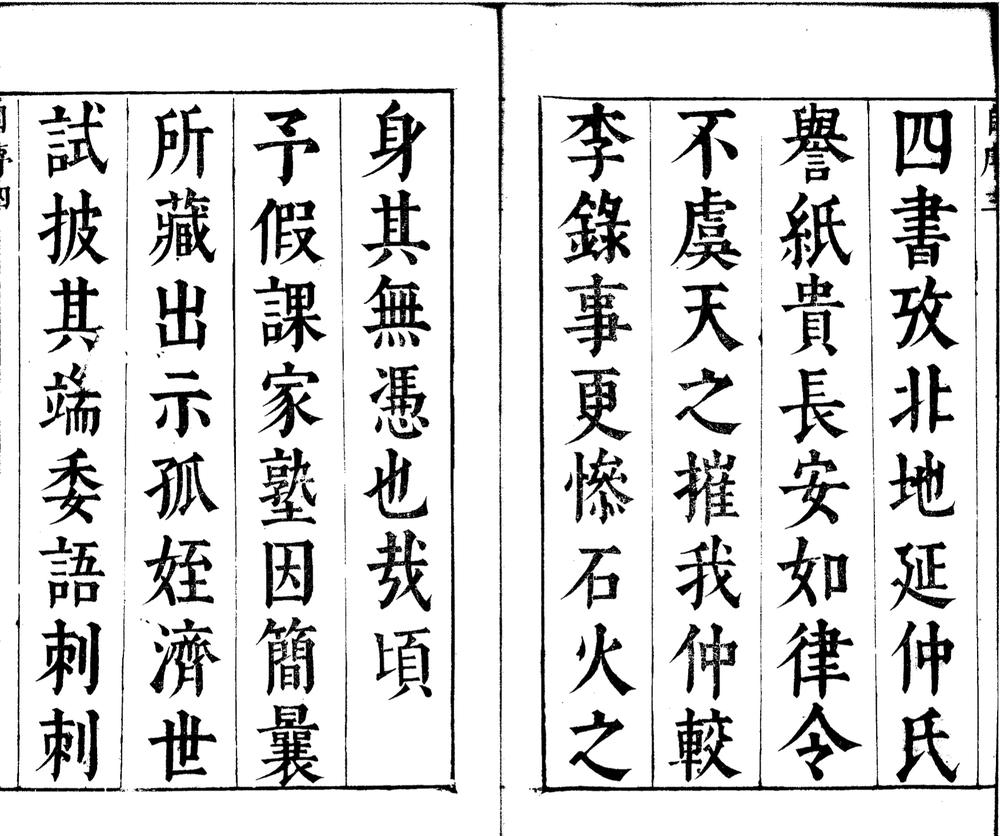 四書攷北地延仲氏
譽紙貴長安如律令
不虞天之摧我仲較
李錄事更慘石火之
身其無憑也㢤頃
予假課家塾因簡曩
所藏出示孤姪濟世
試披其端委語刺刺